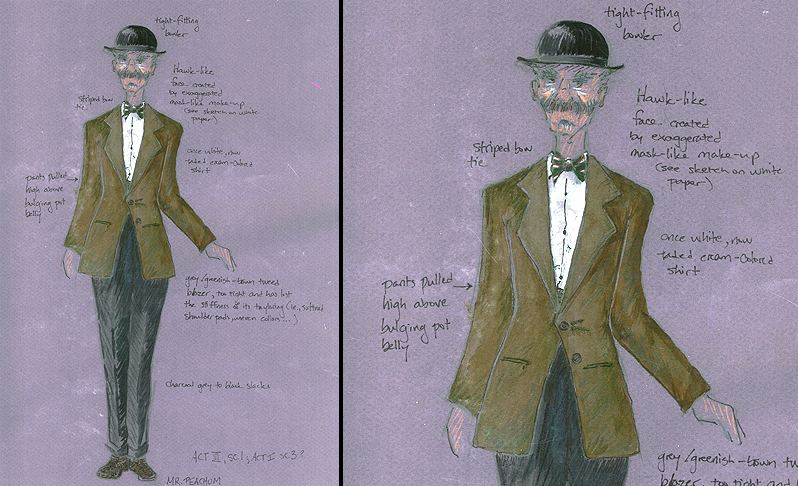 tight-fitting
bowler
Hawk-like
face created
by exaggerated
mask-like make-up
(see sketch on white
paper)
striped bow
tie
once white, now
faded cream-colored
shirt
pants pulled
high above
bulging pot
belly
grey/greenish-brown tweed
blazer, too tight and has lost
the stiffness of its tayloring (ie, softened
shoulder pads, uneven collars...)
charcoal grey to black slacks
ACT III, SC1; ACT I SC3?
MR. PEACHUM
tight-fitting
bowler
Hawk-like
face created
by exaggerated
mask-like make-up
(see sketch on white
paper)
striped bow
tie
once white, now
faded cream-colored
shirt
pants pulled
high above
bulging pot
belly
grey/greenish-brown tw
blazer, too tight and